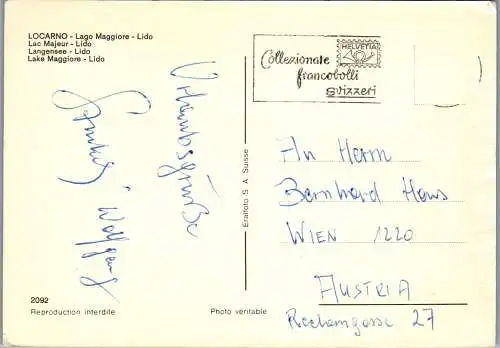 LOCARNO - Lago Maggiore - Lido
Lac Majeur - Lido
Langensee - Lido
Lake Maggiore - Lido
HELVETIA
Collezionate
francobolli
svizzeri
Urlaubsgrüße
Wolfgang
Eralfoto S. A. Suisse
An Herrn
Bernhard Hans
WIEN 1220
AUSTRIA
27
2092
Reproduction interdite
Photo véritable